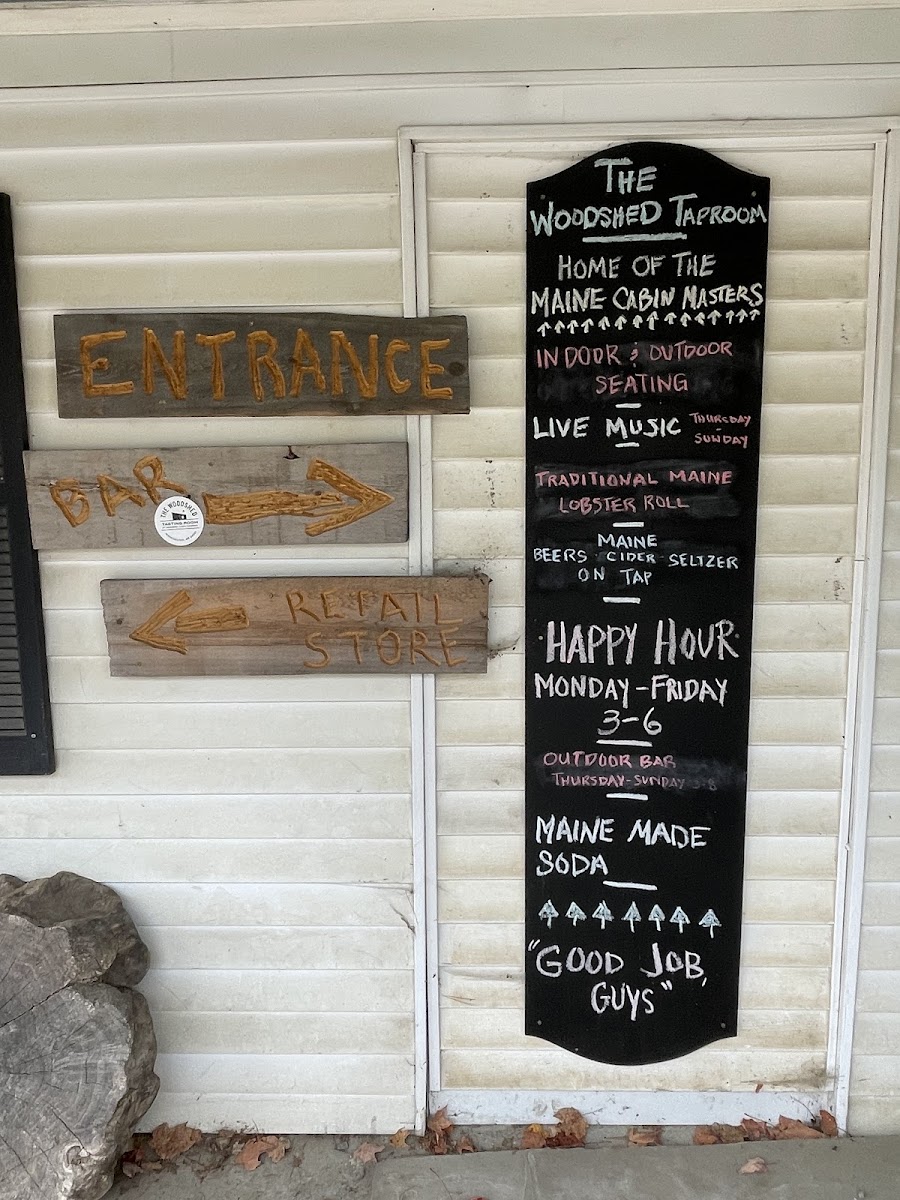 ENTRANCE
BAR
THE WOODSHED
TASTING ROOM
RETAIL
STORE
THE
WOODSHED TAPROOM
HOME OF THE
MAINE CABIN MASTERS
INDOOR & OUTDOOR
SEATING
LIVE MUSIC THURSDAY
- SUNDAY
TRADITIONAL MAINE
LOBSTER ROLL
MAINE
BEERS · CIDER · SELTZER
ON TAP
·HAPPY HOUR·
MONDAY-FRIDAY
3-6
OUTDOOR BAR
THURSDAY-SUNDAY
MAINE MADE
SODA
"GOOD JOB,
GUYS"